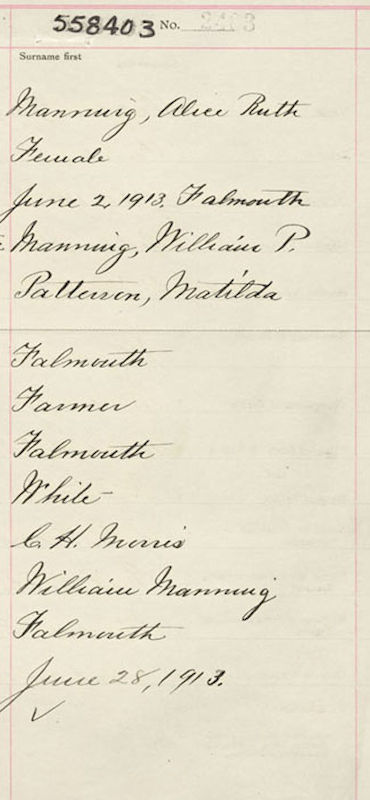 558403 No.
Surname first
Manning, Alice Ruth
Female
June 2, 1913. Falmouth
Manning, William P.
Patterson, Matilda
Falmouth
Farmer
Falmouth
White
C. H. Morris
William Manning
Falmouth
June 28, 1913.